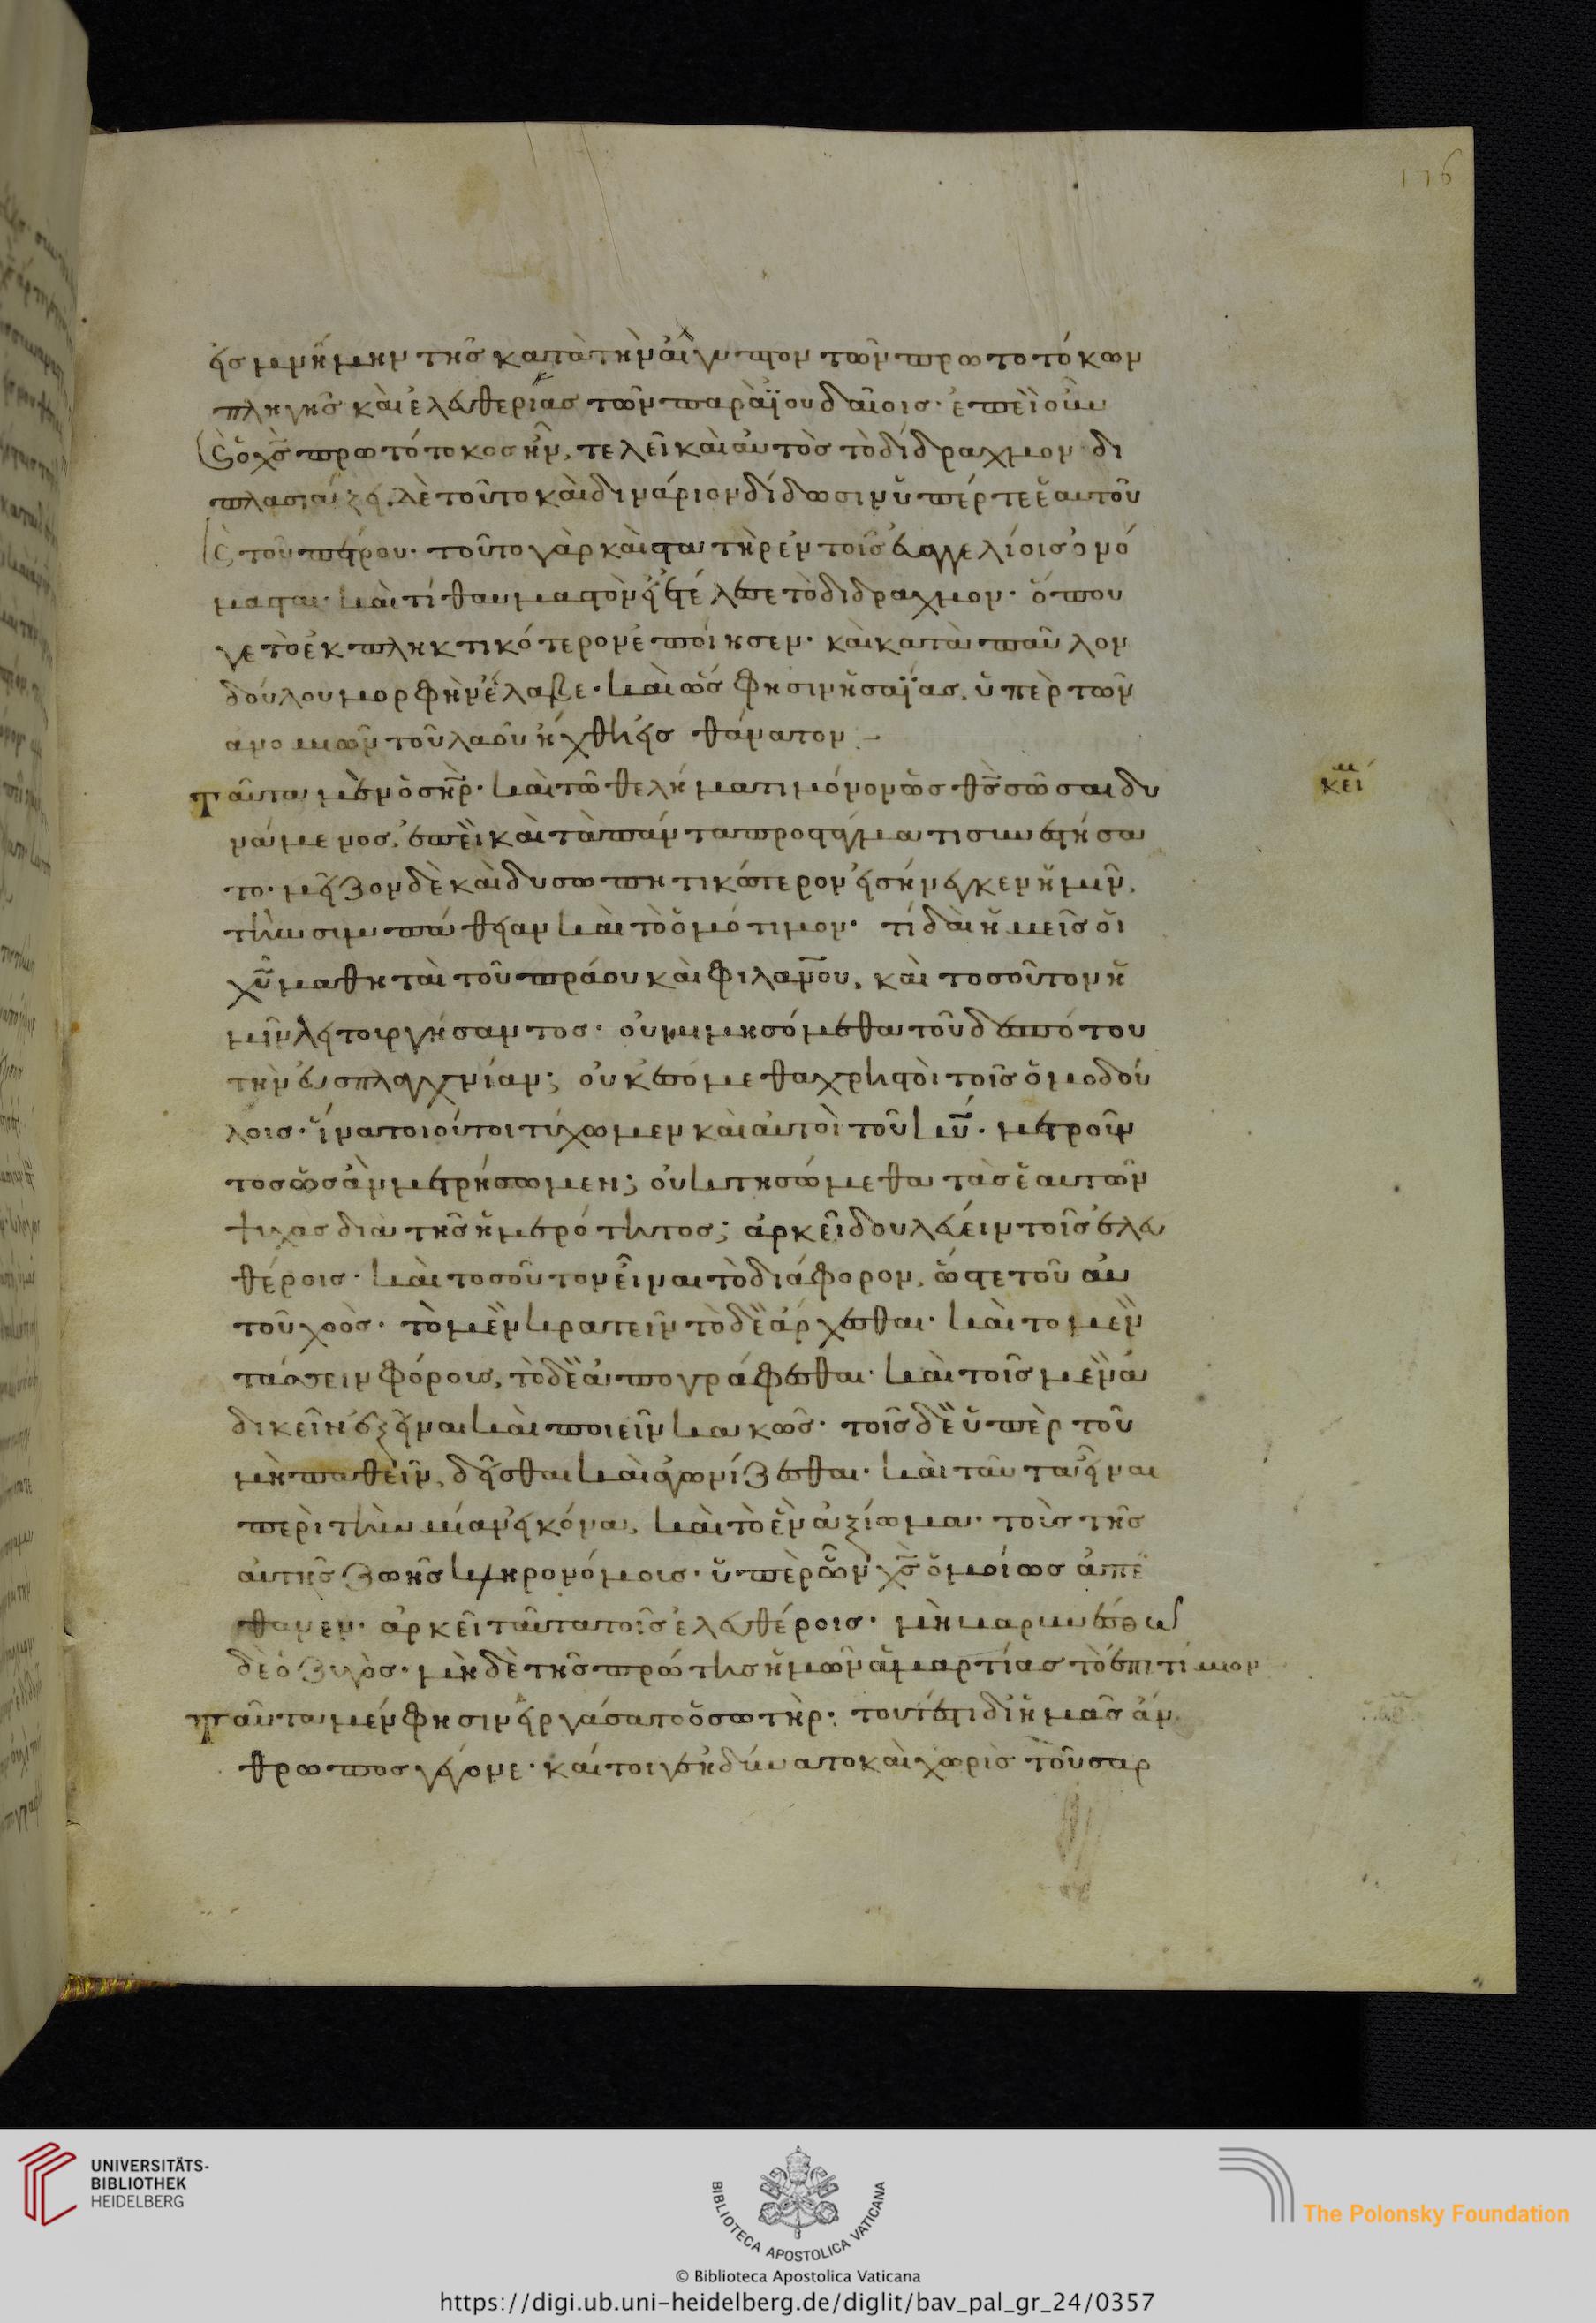 εἰς μνήμην τῆς κατὰ τὴν αἴγυπτον τῶν πρωτοτόκων
πληγῆς καὶ ἐλευθερίας τῶν παρὰ ϊουδαίοις· ἐπεὶ οὖν
καὶ ὁ χς πρωτότοκος ἦν, τελεῖ καὶ αὐτὸς τὸ δίδραχμον δι
πλασιάζει δὲ τοῦτο καὶ διναριον δίδωσιν ὑπέρ τε ἑαυτοῦ
καὶ τοῦ πέτρου· τοῦτο γὰρ καὶ στατὴρ ἐν τοῖς εὐαγγελίοις ὀνό
μασται· καὶ τί θαυμαστὸν εἰ ἐτέλεσε τὸ διδραχμον· ὅπου
γε τὸ ἐκπληκτικότερον ἐποίησεν· καὶ κατὰ παῦλον
δούλου μορφὴν ἔλαβε· καὶ ὥς φησιν ἡσαΐας, ὑπὲρ τῶν
ἀνομιῶν τοῦ λαοῦ ἤχθη εἰς θάνατον –
Ταῦτα μὲν ὁ σηρ· καὶ τῶ θελήματι μόνον ὡς θς σῶσαι δυ
νάμενος, ἐπεὶ καὶ τὰ πάντα προστάγματι συνεστήσα
το· μεῖζον δὲ καὶ δυσωπητικώτερον εἰσήνεγκεν ἡμῖν,
τὴν συμπάθειαν καὶ τὸ ὁμότιμον· τί δαὶ ἡμεῖς οἱ
χυ μαθηταὶ τοῦ πράου καὶ φιλανου, καὶ τοσοῦτον ἡ
μῖν λειτουργήσαντος· οὐ μιμησόμεθα τοῦ δεσπότου
τὴν εὐσπλαγχνίαν; οὐκ ἐσόμεθα χρηστοὶ τοῖς ὁμοδού
λοις· ἵνα τοιούτου τύχωμεν καὶ αὐτοὶ τοῦ κυ· μετροῦν
τος ὡς ἂν μετρήσωμεν; οὐ κτησώμεθα τὰς ἑαυτῶν
ψυχὰς διὰ τῆς ἡμερότητος; ἀρκεῖ δουλεύειν τοῖς ἐλευ
θέροις· καὶ τοσοῦτον εἶναι τὸ διάφορον, ὥστε τοῦ αὐ
τοῦ χοὸς· τὸ μὲν κρατεῖν τὸ δὲ ἄρχεσθαι· καὶ το μὲν
τάσσειν φόρους, τὸ δὲ ἀπογράφεσθαι· καὶ τοῖς μὲν ἀ
δικεῖν ἐξεῖναι καὶ ποιεῖν κακῶς· τοῖς δὲ ὑπὲρ τοῦ
μὴ παθεῖν, δεῖσθαι καὶ ἀγωνίζεσθαι· καὶ ταῦτα εἶναι
περὶ τὴν μίαν εἰκόνα, καὶ τὸ ἓν ἀξίωμα· τοὺς τῆς
αὐτῆς ζωῆς κληρονόμοις· ὑπὲρ ὧν χς ὁμοίως ἀπέ
θανεν· ἀρκεῖ ταῦτα τοῖς ἐλευθέροις· μὴ βαρυνέσθω
δὲ ὁ ζυγὸς· μὴ δὲ τῆς πρώτης ἡμῶν ἁμαρτίας τὸ ἐπιτίμιον
Ταῦτα μέν φησιν εἰργάσατο ὁ σωτὴρ· τουτέστι δι' ἡμᾶς ἄν
θρωπος γέγονε· καίτοιγε ἠδύνατο καὶ χωρὶς τοῦ σαρ
κεί
176
UNIVERSITÄTS-
BIBLIOTHEK
HEIDELBERG
BIBLIOTECA APOSTOLICA VATICANA
The Polonsky Foundation
© Biblioteca Apostolica Vaticana
https://digi.ub.uni-heidelberg.de/diglit/bav_pal_gr_24/0357